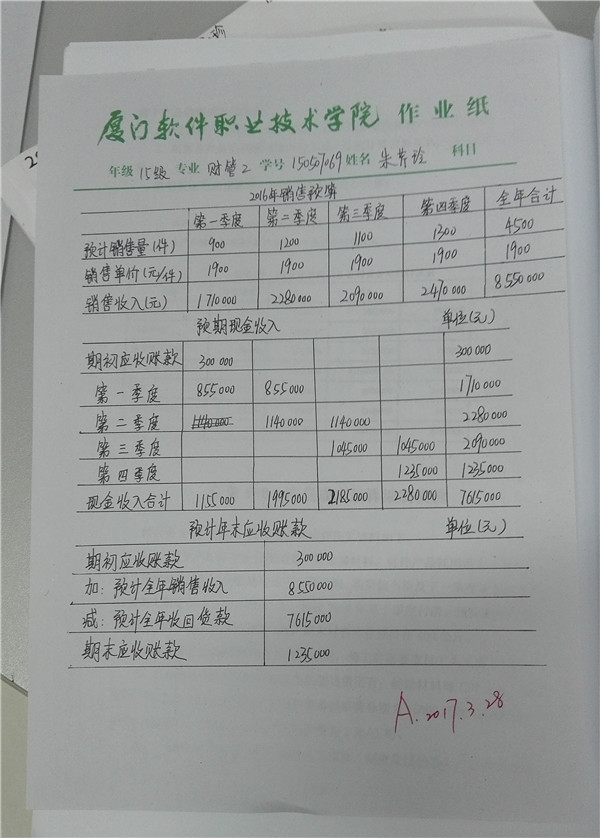 厦门软件职业技术学院 作业纸
年级 15级 专业 财管2 学号 150507069 姓名 朱芳玲 科目
2016年销售预算
第一季度 第二季度 第三季度 第四季度 全年合计
预计销售量(件) 900 1200 1100 1300 4500
销售单价(元/件) 1900 1900 1900 1900 1900
销售收入(元) 1710000 2280000 2090000 2470000 8550000
预期现金收入 单位(元)
期初应收账款 300000 300000
第一季度 855000 855000 1710000
第二季度 1140000 1140000 1140000 2280000
第三季度 1045000 1045000 2090000
第四季度 1235000 1235000
现金收入合计 1155000 1995000 2185000 2280000 7615000
预计年末应收账款 单位(元)
期初应收账款 300000
加：预计全年销售收入 8550000
减：预计全年收回货款 7615000
期末应收账款 1235000
A. 2017.3.28